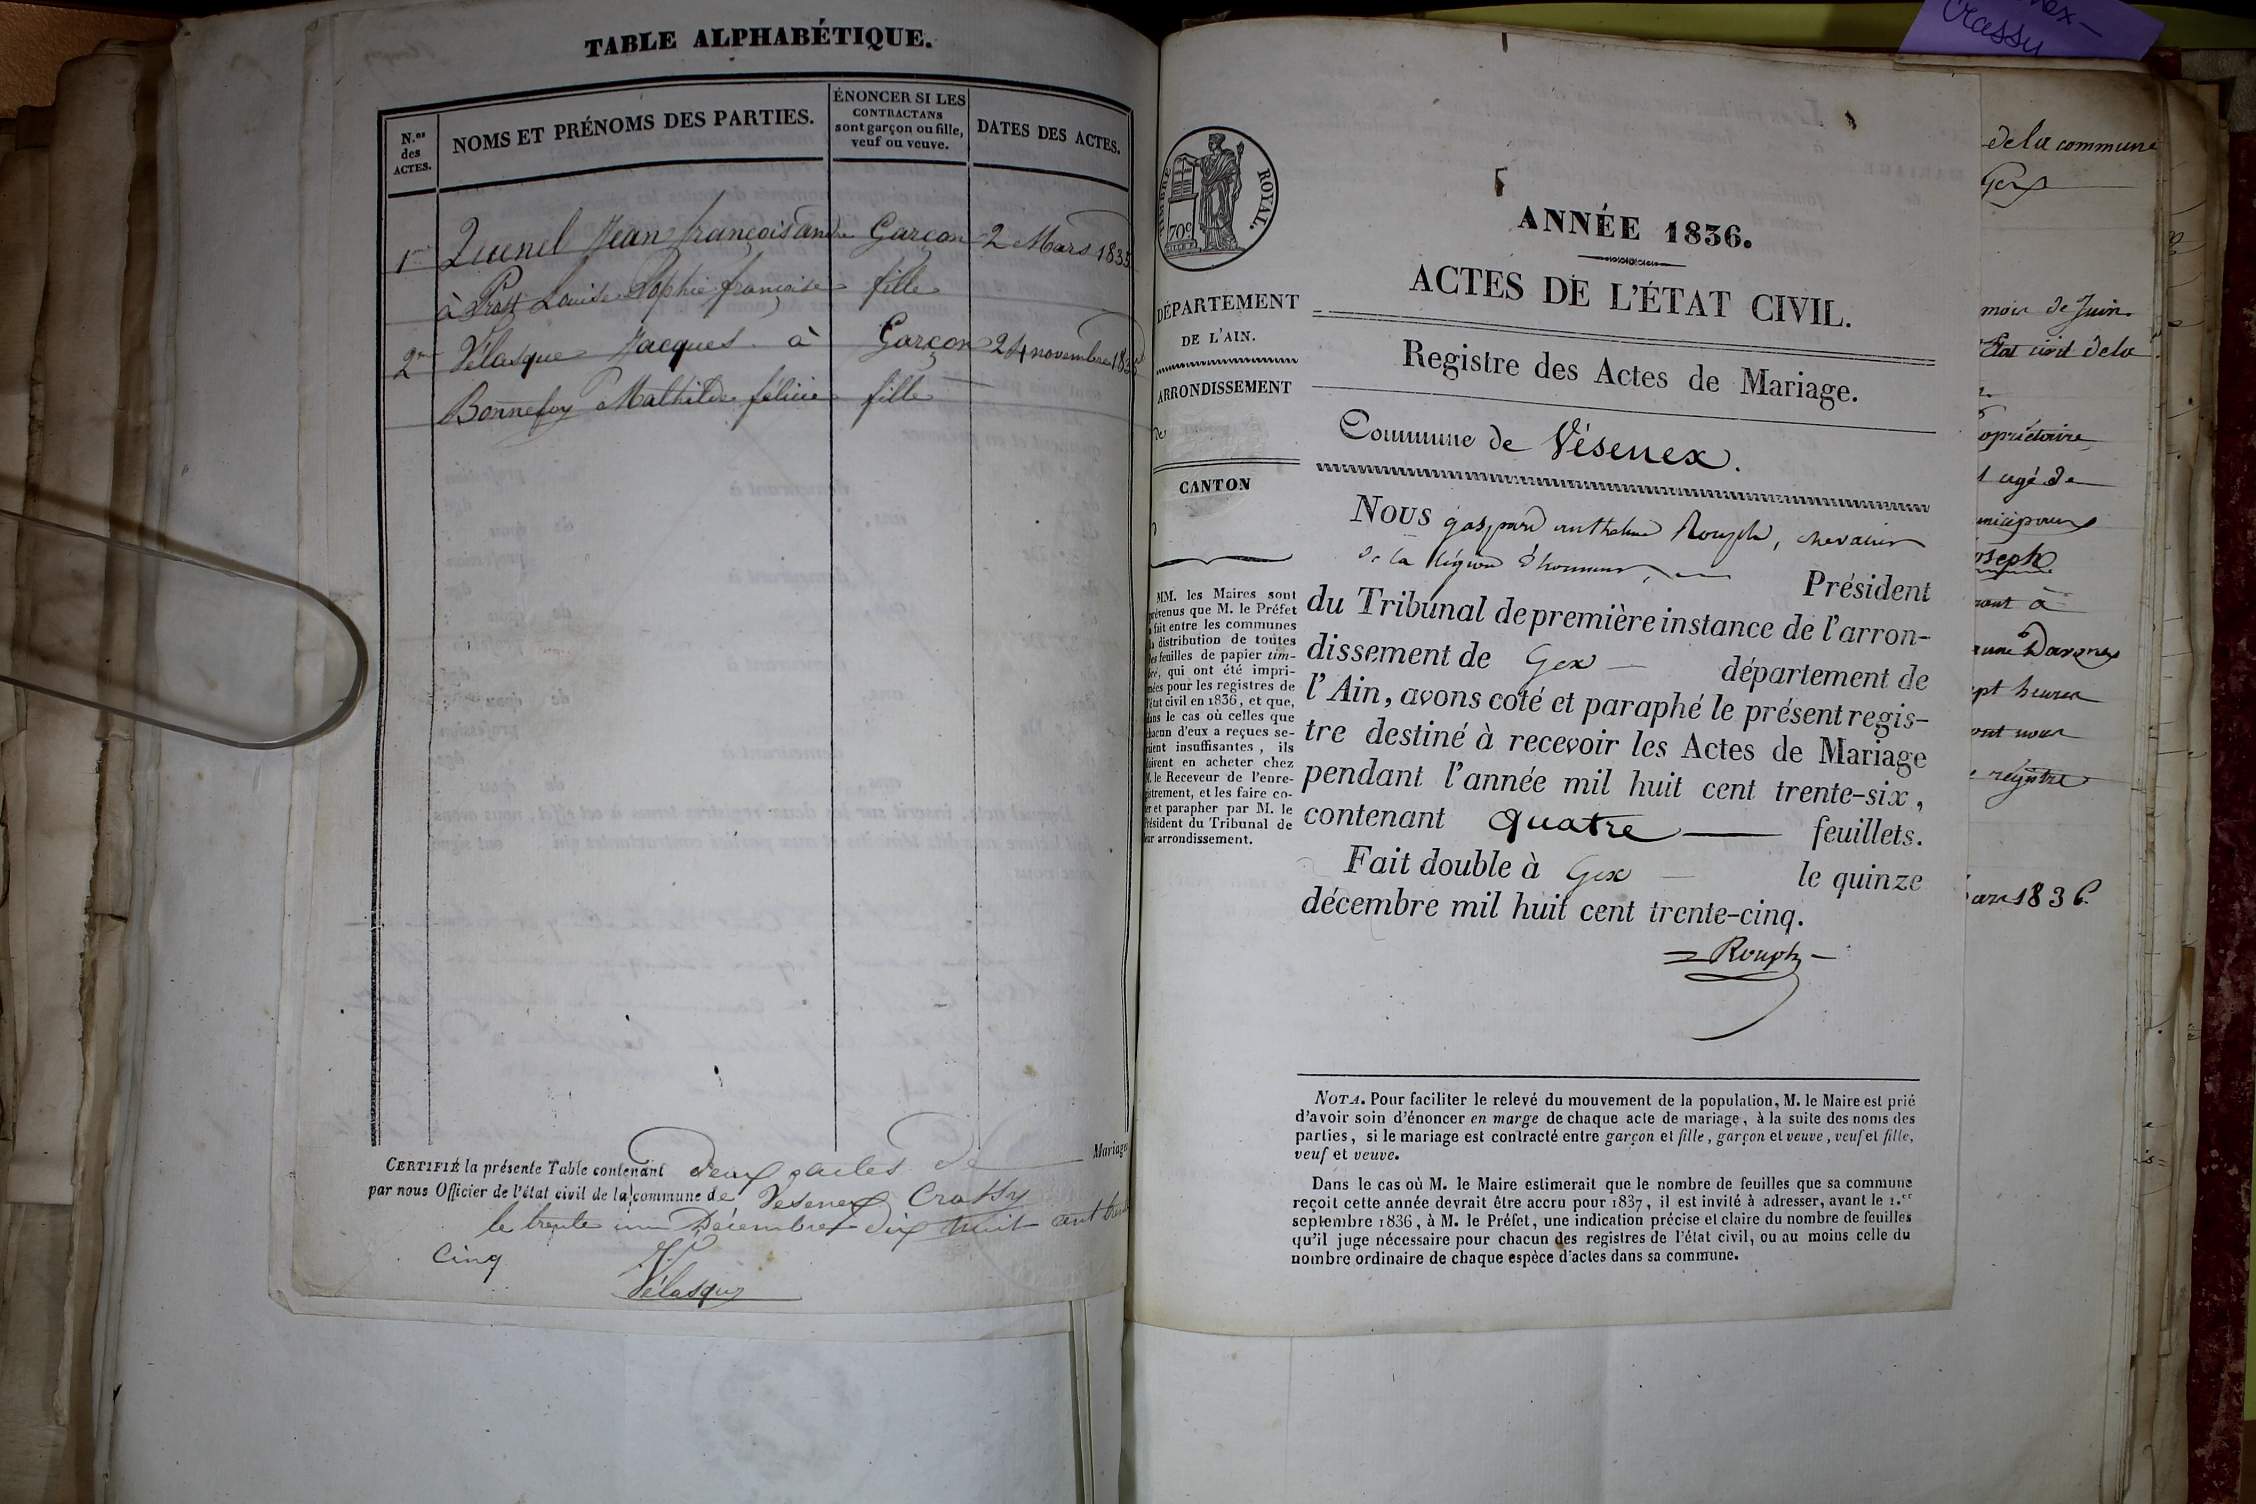 TABLE ALPHABÉTIQUE.
N.os des ACTES.
NOMS ET PRÉNOMS DES PARTIES.
ÉNONCER SI LES
CONTRACTANS
sont garçon ou fille,
veuf ou veuve.
DATES DES ACTES.
1er Quenel Jean françois andre Garçon 2 Mars 1835
à Louise Sophie françoise fille
2me Vélasque Jacques à Garçon 24 novembre 1835
Bonnefoy Mathilde félicie fille
CERTIFIÉ la présente Table contenant deux actes de Mariage
par nous Officier de l'état civil de la commune de Vesenex Crassy
le trente un Décembre dix huit cent trente
Cinq
Vélasque
nex-
Crassy
TIMBRE ROYAL.
70c
ANNÉE 1836.
ACTES DE L'ÉTAT CIVIL.
DÉPARTEMENT
DE L'AIN.
ARRONDISSEMENT
de
CANTON
Registre des Actes de Mariage.
Commune de Vésenex.
MM. les Maires sont
prévenus que M. le Préfet
a fait entre les communes
la distribution de toutes
les feuilles de papier tim-
bré, qui ont été impri-
mées pour les registres de
l'état civil en 1836, et que,
dans le cas où celles que
chacun d'eux a reçues se-
raient insuffisantes, ils
doivent en acheter chez
M. le Receveur de l'enre-
gistrement, et les faire co-
ter et parapher par M. le
Président du Tribunal de
leur arrondissement.
NOUS gaspard anthelme Rouph, chevalier
de la légion d'honneur, Président
du Tribunal de première instance de l'arron-
dissement de Gex département de
l'Ain, avons coté et paraphé le présent regis-
tre destiné à recevoir les Actes de Mariage
pendant l'année mil huit cent trente-six,
contenant quatre feuillets.
Fait double à Gex le quinze
décembre mil huit cent trente-cinq.
Rouph
NOTA. Pour faciliter le relevé du mouvement de la population, M. le Maire est prié
d'avoir soin d'énoncer en marge de chaque acte de mariage, à la suite des noms des
parties, si le mariage est contracté entre garçon et fille, garçon et veuve, veuf et fille,
veuf et veuve.
Dans le cas où M. le Maire estimerait que le nombre de feuilles que sa commune
reçoit cette année devrait être accru pour 1837, il est invité à adresser, avant le 1.er
septembre 1836, à M. le Préfet, une indication précise et claire du nombre de feuilles
qu'il juge nécessaire pour chacun des registres de l'état civil, ou au moins celle du
nombre ordinaire de chaque espèce d'actes dans sa commune.
de la commune
Gex
mois de Juin
État civil de la
opriétaire
agé de
oseph
à
ept heures
nous
registre
1836